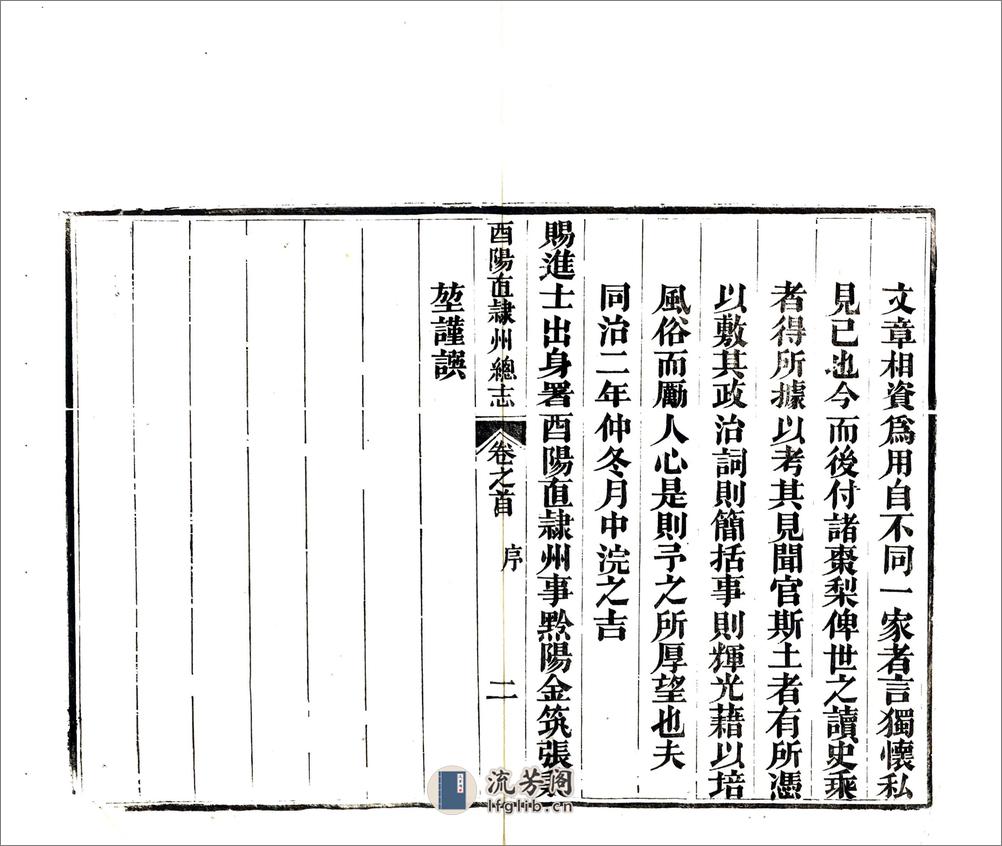 文章相資爲用自不同一家者言獨懷私
見已也今而後付諸棗梨俾世之讀史乘
者得所據以考其見聞官斯土者有所憑
以敷其政治詞則簡括事則輝光藉以培
風俗而勵人心是則予之所厚望也夫
同治二年仲冬月中浣之吉
賜進士出身署酉陽直隷州事黔陽金筑張秉
酉陽直隷州總志 卷之首 序 二
堃謹譔
流芳閣
lfglib.cn